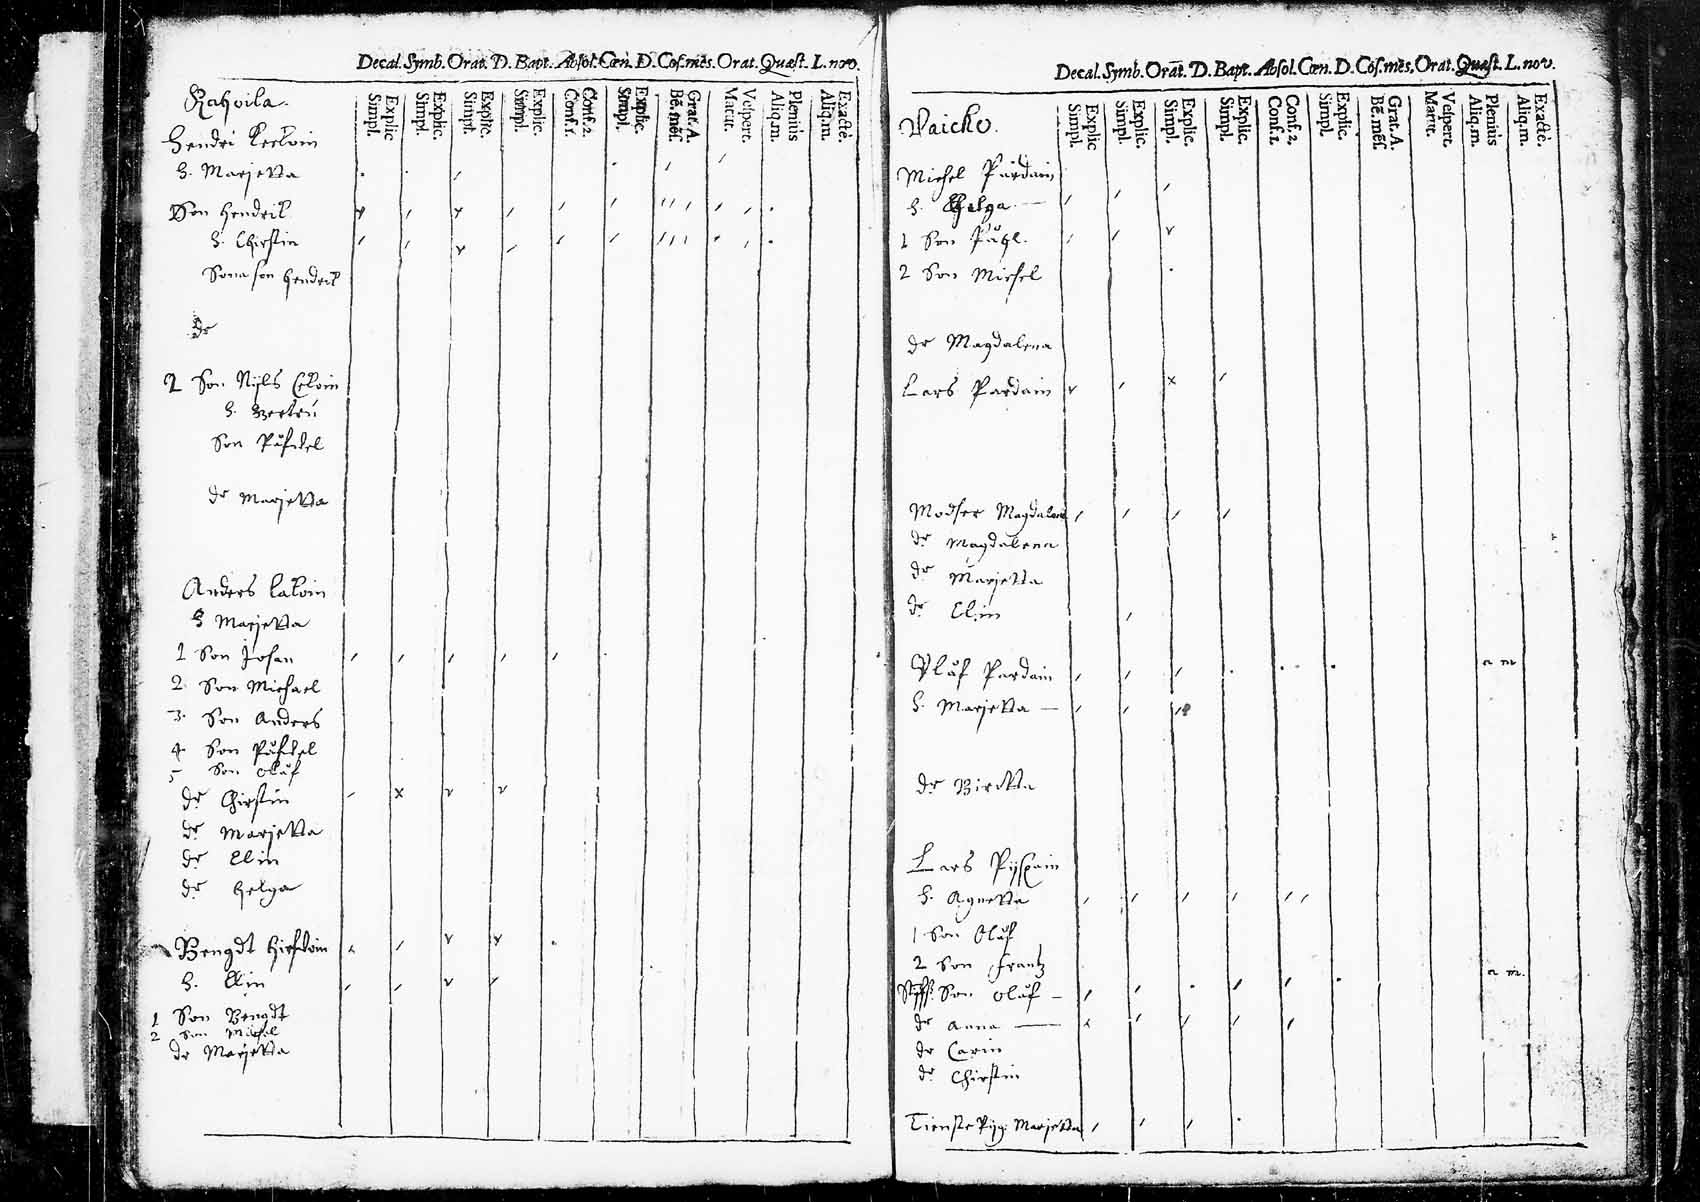 Decal. Symb. Orat. D. Bapt. Absol. Cœn. D. Cof. mēs. Orat. Quæst. L. nov.
Explic Simpl. Explic. Simpl. Explic. Simpl. Explic. Simpl. Conf. 2. Conf. 1. Explic. Simpl. Grat. A. Bē. mēs. Vespert. Matut. Plenius Aliq. m. Exactè. Aliq. m.
Hendri
h. Marjetta
Son Hendrik
h. Chirstin
Sona son Hendrik
de
2 Son Nijls
h.
Son Påfvel
dr Marjetta
Anders
h Marjetta
1 Son Johan
2. Son Michael
3. Son Anders
4. Son Påfvel
5 Son Oluf
dr Chirstin
dr Marjetta
dr Elin
dr Helga
Bengdt
h. Elin
1 Son Bengdt
2 Son Michel
dr Marjetta
Decal. Symb. Orat. D. Bapt. Absol. Cœn. D. Cof. mēs. Orat. Quæst. L. nov.
Explic Simpl. Explic. Simpl. Explic. Simpl. Explic. Simpl. Conf. 2. Conf. 1. Explic. Simpl. Grat. A. Bē. mēs. Vespert. Matut. Plenius Aliq. m. Exactè. Aliq. m.
Michel Pardain
h. Helga
1 Son Påhl.
2 Son Michel
dr Magdalena
Lars Pardain
Modher Magdalena
dr Magdalena
dr Marjetta
dr Elin
Oluf Pardain a m
h. Marjetta
dr Biritta
Lars
h. Agnetta
1 Son Oluf
2 Son Frantz a m.
Son Oluf
dr Anna
dr Carin
dr Chirstin
Tienste Pijg: Marjetta